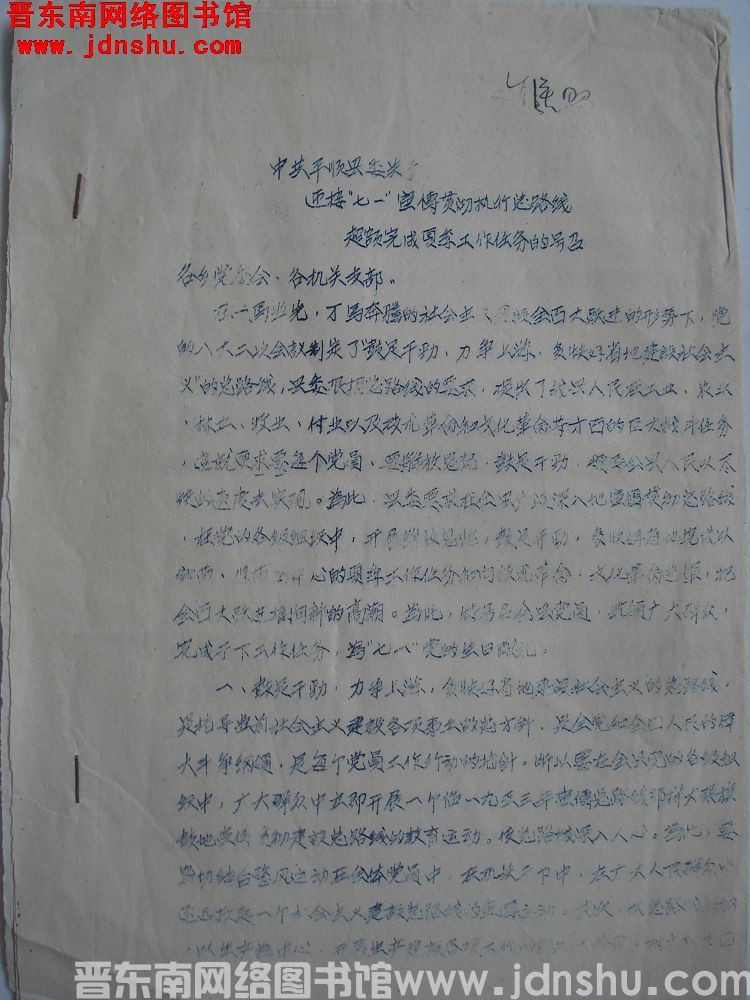 晋东南网络图书馆
www.jdnshu.com
中共平顺县委关于
迎接"七一"宣传贯彻执行总路线
超额完成夏季工作任务的号召
各乡党委会、各机关支部：
在一马当先，万马奔腾的社会主义建设全面大跃进的形势下，党
的八大二次会议制定了鼓足干劲，力争上游，多快好省地建设社会主
义"的总路线，县委根据总路线的要求，提出了我县人民在工业、农业
、林业、牧业、付业以及技术革命和文化革命等方面的巨大战斗任务
，这就要求要每个党员，要解放思想，鼓足干劲，领导全县人民以尽
快的速度去实现。为此，县委要求在全县广泛深入地宣传贯彻总路线
，在党的各级组织中，开展解放思想，鼓足干劲，多快好省地完成以
中心的夏季工作任务和向技术革命，文化革命进军，把
全面大跃进推向新的高潮。为此，特号召全县党员，共同广大群众，
完成于下工作任务，为"七一"党的生日献礼。
一、鼓足干劲，力争上游，多快好省地建设社会主义的总路线，
是指导当前社会主义建设各项事业的总方针，是全党和全国人民的伟
大斗争纲领，是每个党员工作行动的指针。所以要在全县党的各级组
织中，广大群众中立即开展一个像一九五三年宣传总路线那样大张旗
鼓地宣传贯彻建设总路线的教育运动。使总路线深入人心。为此，要
密切结合整风运动在全体党员中，在机关干部中，在广大人民群众中
迅速掀起一个社会主义建设总路线的宣传运动。
，以生产为中心，开展生产建设各项工作
晋东南网络图书馆www.jdnshu.com